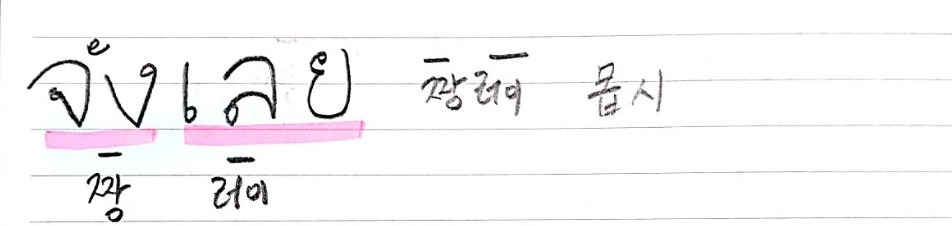 จังเลย 짱러이 몹시
짱 러이